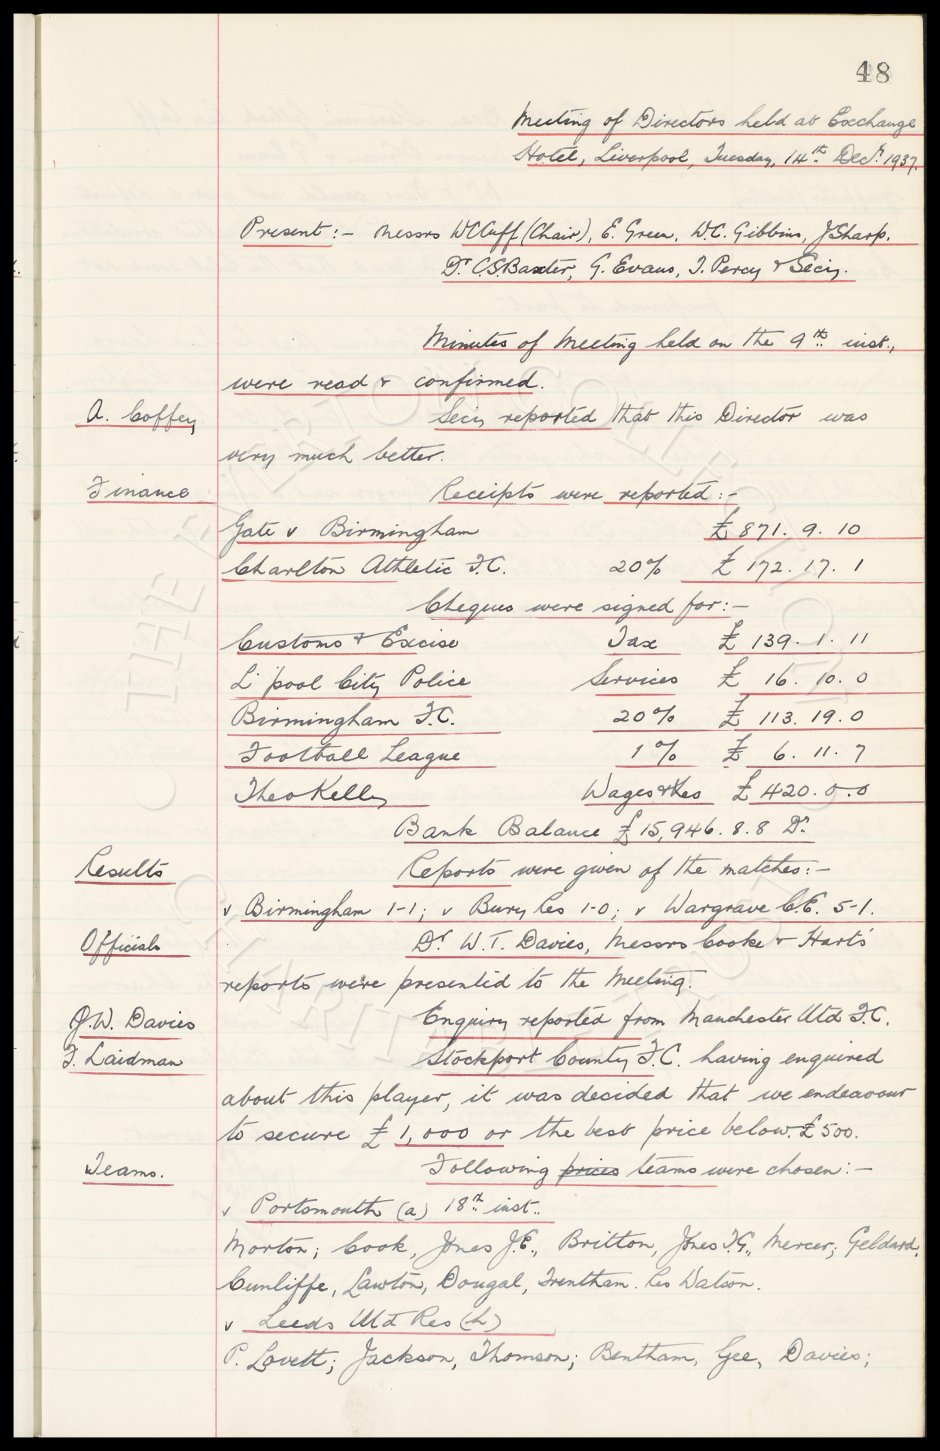 48
Meeting of Directors held at Exchange
Hotel, Liverpool, Tuesday, 14th Decr 1937.
Present:- Messrs W C Cuff (Chair), E. Green, W.C. Gibbins, J Sharp,
Dr C.S. Baxter, G. Evans, T. Percy & Secy.
Minutes of Meeting held on the 9th inst.,
were read & confirmed.
A. Coffey Secy reported that this Director was
very much better.
Finance Receipts were reported:-
Gate v Birmingham £ 871. 9. 10
Charlton Athletic F.C. 20% £ 172. 17. 1
Cheques were signed for:-
Customs & Excise Tax £ 139. 1. 11
L'pool City Police Services £ 16. 10. 0
Birmingham F.C. 20% £ 113. 19. 0
Football League 1% £ 6. 11. 7
Theo Kelly Wages &Xes £ 420. 0. 0
Bank Balance £15,946. 8. 8 Dr.
Results Reports were given of the matches:-
v Birmingham 1-1; v Bury Res 1-0; v Wargrave C.E. 5-1.
Officials Dr W.T. Davies, Messrs Cooke & Hart's
reports were presented to the Meeting.
J.W. Davies Enquiry reported from Manchester Utd F.C.
F. Laidman Stockport County F.C. having enquired
about this player, it was decided that we endeavour
to secure £1,000 or the best price below £500.
Teams. Following prices teams were chosen:-
v Portsmouth (a) 18th inst..
Morton; Cook, Jones J.E., Britton, Jones T.G., Mercer; Geldard,
Cunliffe, Lawton, Dougal, Trentham. Res Watson.
v Leeds Utd Res (h)
P. Lovett; Jackson, Thomson; Bentham, Gee, Davies;
THE EVERTON COLLECTION CHARITABLE TRUST